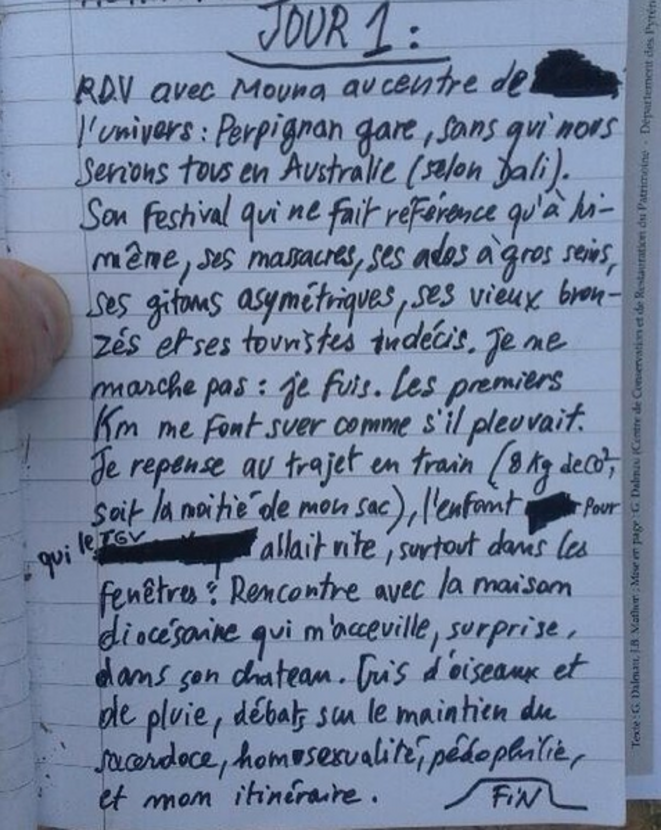 JOUR 1 :
RDV avec Mouna au centre de
l'univers : Perpignan gare, sans qui nous
serions tous en Australie (selon Dali).
Son festival qui ne fait référence qu'à lui-
même, ses massacres, ses ados à gros seins,
ses gitans asymétriques, ses vieux bron-
zés et ses touristes indécis. Je ne
marche pas : je fuis. Les premiers
Km me font suer comme s'il pleuvait.
Je repense au trajet en train (8 Kg de CO²,
soit la moitié de mon sac), l'enfant pour
qui le TGV allait vite, surtout dans les
fenêtres. Rencontre avec la maison
diocésaine qui m'acceuille, surprise,
dans son chateau. Cris d'oiseaux et
de pluie, débats sur le maintien du
sacerdoce, homosexualité, pédophilie,
et mon itinéraire. FiN
Texte : G. Dalmau, J.B. Mathon ; Mise en page : G. Dalmau (Centre de Conservation et de Restauration du Patrimoine - Département des Pyrén